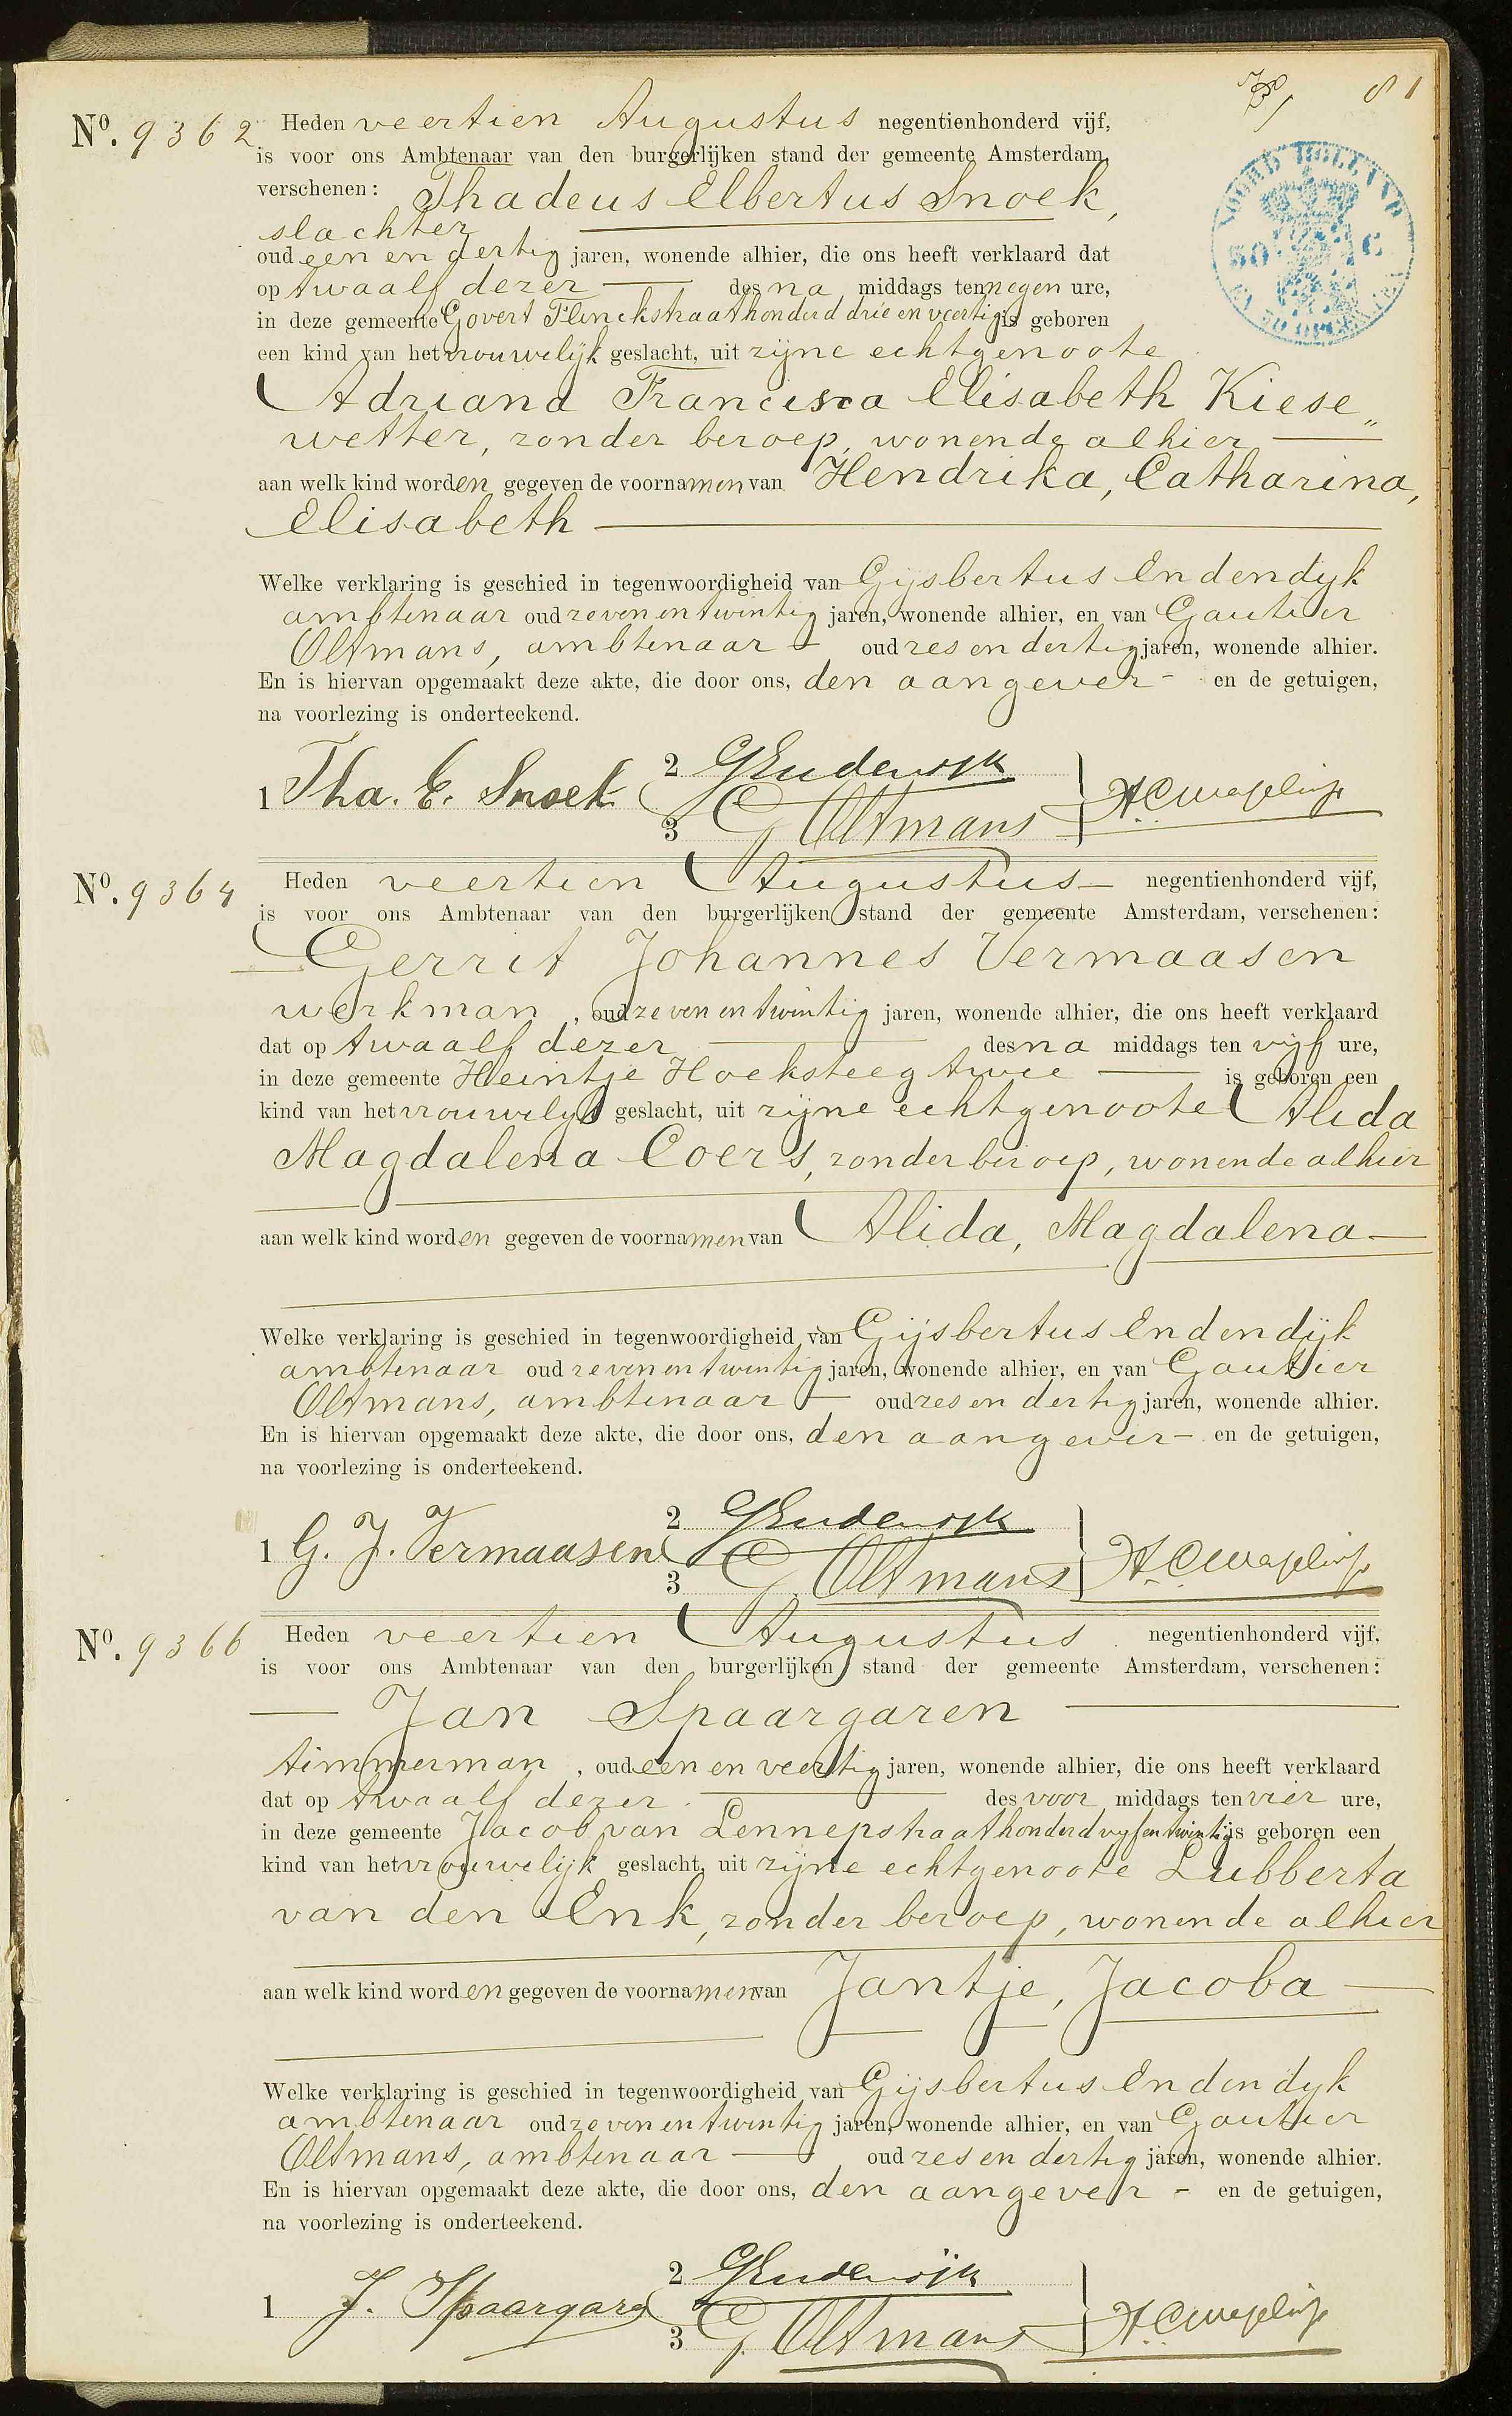 81
Nº. 9362 Heden veertien Augustus negentienhonderd vijf,
is voor ons Ambtenaar van den burgerlijken stand der gemeente Amsterdam,
verschenen: Thadeus Elbertus Snoek,
slachter
oud een en dertig jaren, wonende alhier, die ons heeft verklaard dat
op twaalf dezer des na middags ten negen ure,
in deze gemeente Govert Flinckstraat honderd drie en veertig is geboren
een kind van het vrouwelijk geslacht, uit zijne echtgenoote
Adriana Francisca Elisabeth Kiese„
wetter, zonder beroep, wonende alhier
aan welk kind worden gegeven de voornamen van Hendrika, Catharina,
Elisabeth
Welke verklaring is geschied in tegenwoordigheid van Gijsbertus Endendijk
ambtenaar oud zeven en twintig jaren, wonende alhier, en van Gautier
Oltmans, ambtenaar oud zes en dertig jaren, wonende alhier.
En is hiervan opgemaakt deze akte, die door ons, den aangever en de getuigen,
na voorlezing is onderteekend.
1 Tha. E. Snoek 2 GEndendijk
3 G Oltmans
Nº. 9364 Heden veertien Augustus negentienhonderd vijf,
is voor ons Ambtenaar van den burgerlijken stand der gemeente Amsterdam, verschenen:
Gerrit Johannes Vermaasen
werkman, oud zeven en twintig jaren, wonende alhier, die ons heeft verklaard
dat op twaalf dezer des na middags ten vijf ure,
in deze gemeente Heintje Hoeksteeg twee is geboren een
kind van het vrouwelijk geslacht, uit zijne echtgenoote Alida
Magdalena Coers, zonder beroep, wonende alhier
aan welk kind worden gegeven de voornamen van Alida, Magdalena
Welke verklaring is geschied in tegenwoordigheid van Gijsbertus Endendijk
ambtenaar oud zeven en twintig jaren, wonende alhier, en van Gautier
Oltmans, ambtenaar oud zes en dertig jaren, wonende alhier.
En is hiervan opgemaakt deze akte, die door ons, den aangever en de getuigen,
na voorlezing is onderteekend.
1 G. J. Vermaasen 2 GEndendijk
3 G Oltmans
Nº. 9366 Heden veertien Augustus negentienhonderd vijf,
is voor ons Ambtenaar van den burgerlijken stand der gemeente Amsterdam, verschenen:
Jan Spaargaren
timmerman, oud een en veertig jaren, wonende alhier, die ons heeft verklaard
dat op twaalf dezer des voor middags ten vier ure,
in deze gemeente Jacob van Lennepstraat honderd vijf en twintig is geboren een
kind van het vrouwelijk geslacht, uit zijne echtgenoote Lubberta
van den Enk, zonder beroep, wonende alhier
aan welk kind worden gegeven de voornamen van Jantje, Jacoba
Welke verklaring is geschied in tegenwoordigheid van Gijsbertus Endendijk
ambtenaar oud zeven en twintig jaren, wonende alhier, en van Gautier
Oltmans, ambtenaar oud zes en dertig jaren, wonende alhier.
En is hiervan opgemaakt deze akte, die door ons, den aangever en de getuigen,
na voorlezing is onderteekend.
1 J. Spaargaren 2 GEndendijk
3 G. Oltmans